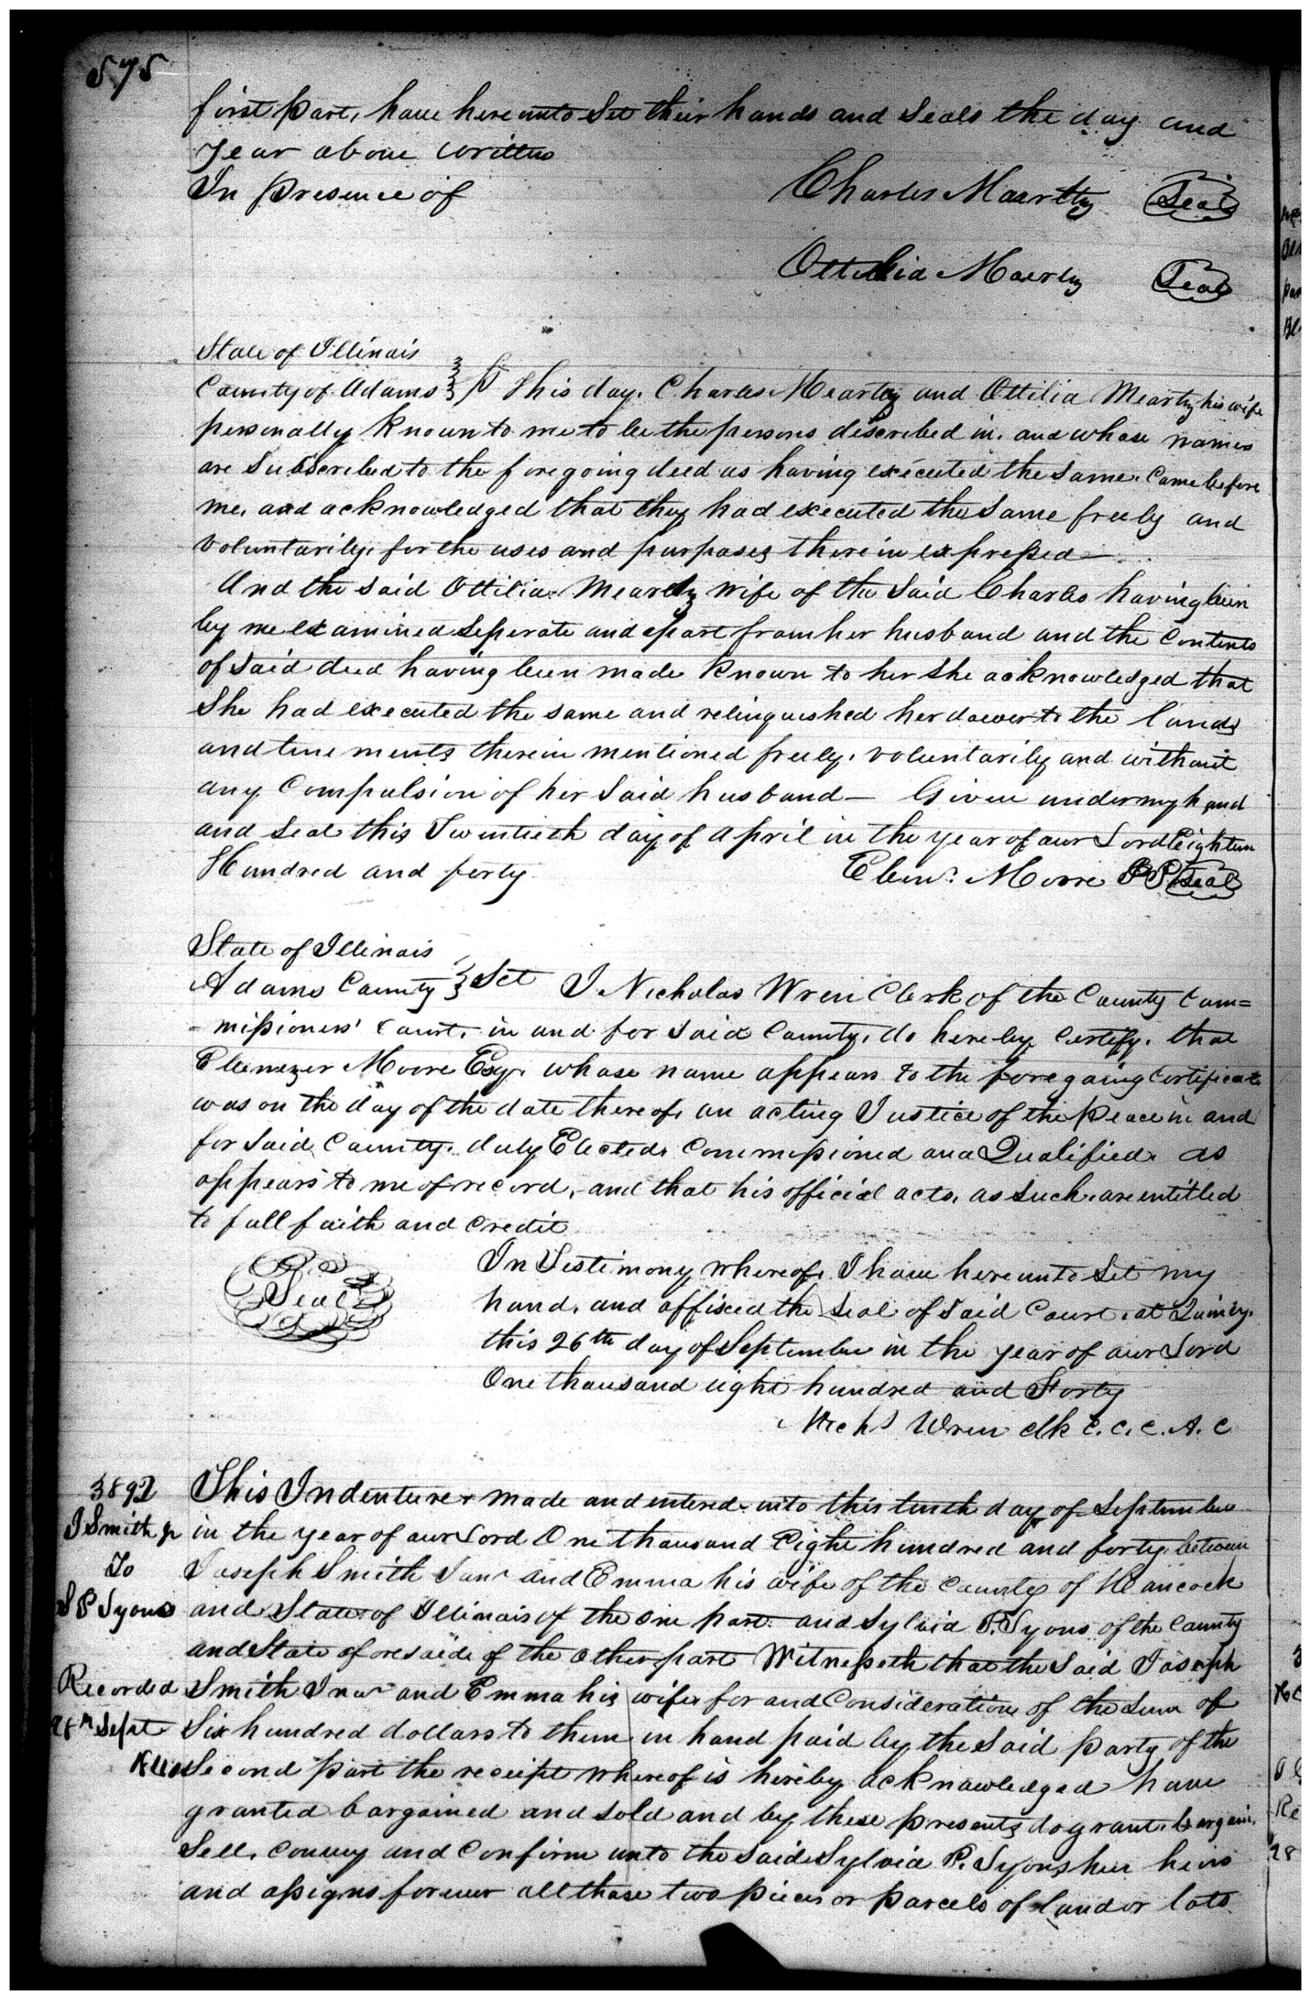 575
first part, have hereunto Set their hands and Seals the day and
year above written
In presence of Charles Maertz Seal
Ottilia Maertz Seal
State of Illinois
County of Adams This day. Charles Meartz and Ottilia Meartz his wife
personally Known to me to be the persons described in. and whose names
are Subscribed to the foregoing deed as having executed the Same. Came before
me, and acknowledged that they had executed the Same freely and
voluntarily, for the uses and purposes therein expressed—
And the said Ottilia Meartz wife of the Said Charles having been
by me examined Seperate and apart from her husband and the Contents
of Said deed having been made Known to her She acknowledged that
She had executed the same and relinquished her dower to the lands
and tenements therein mentioned freely, voluntarily and without
any Compulsion of her Said husband— Given under my hand
and Seal this Twentieth day of April in the year of our Lord Eighteen
Hundred and forty. Eben. Moore JP Seal
State of Illinois
Adams County Sct I Nicholas Wren Clerk of the County Com=
=missioners' Court, in and for Said County, do hereby Certify, that
Ebenezer Moore Esqr. whose name appears to the foregoing Certificate
was on the day of the date thereof, an acting Justice of the Peace in and
for Said County, duly Elected, Commissioned and Qualified, as
appears to me of record, and that his official acts, as Such are entitled
to full faith and Credit
Seal
In Testimony whereof, I have hereunto Set my
hand, and affixed the Seal of Said Court, at Quincy,
this 26th day of September in the year of our Lord
One thousand eight hundred and Forty
Nichs Wren clk C. C. C. A. C
3892 This Indenture, made and entered into this tenth day of September
J Smith jr in the year of our Lord One thousand Eight hundred and forty, between
To Joseph Smith Junr and Emma his wife of the County of Hancock
S P Lyons and State of Illinois of the one part and Sylvia P. Lyons of the County
and State aforesaid of the other part Witnesseth that the Said Joseph
Recorded Smith Junr and Emma his wife, for and Consideration of the Sum of
28th Sept Six hundred dollars to them in hand paid by the Said party of the
Second part the receipt whereof is hereby acknowledged have
granted bargained and Sold and by these presents do grant, bargain,
Sell, Convey and Confirm unto the Said Sylvia P. Lyons her heirs
and assigns forever all those two pieces or parcels of land or lots